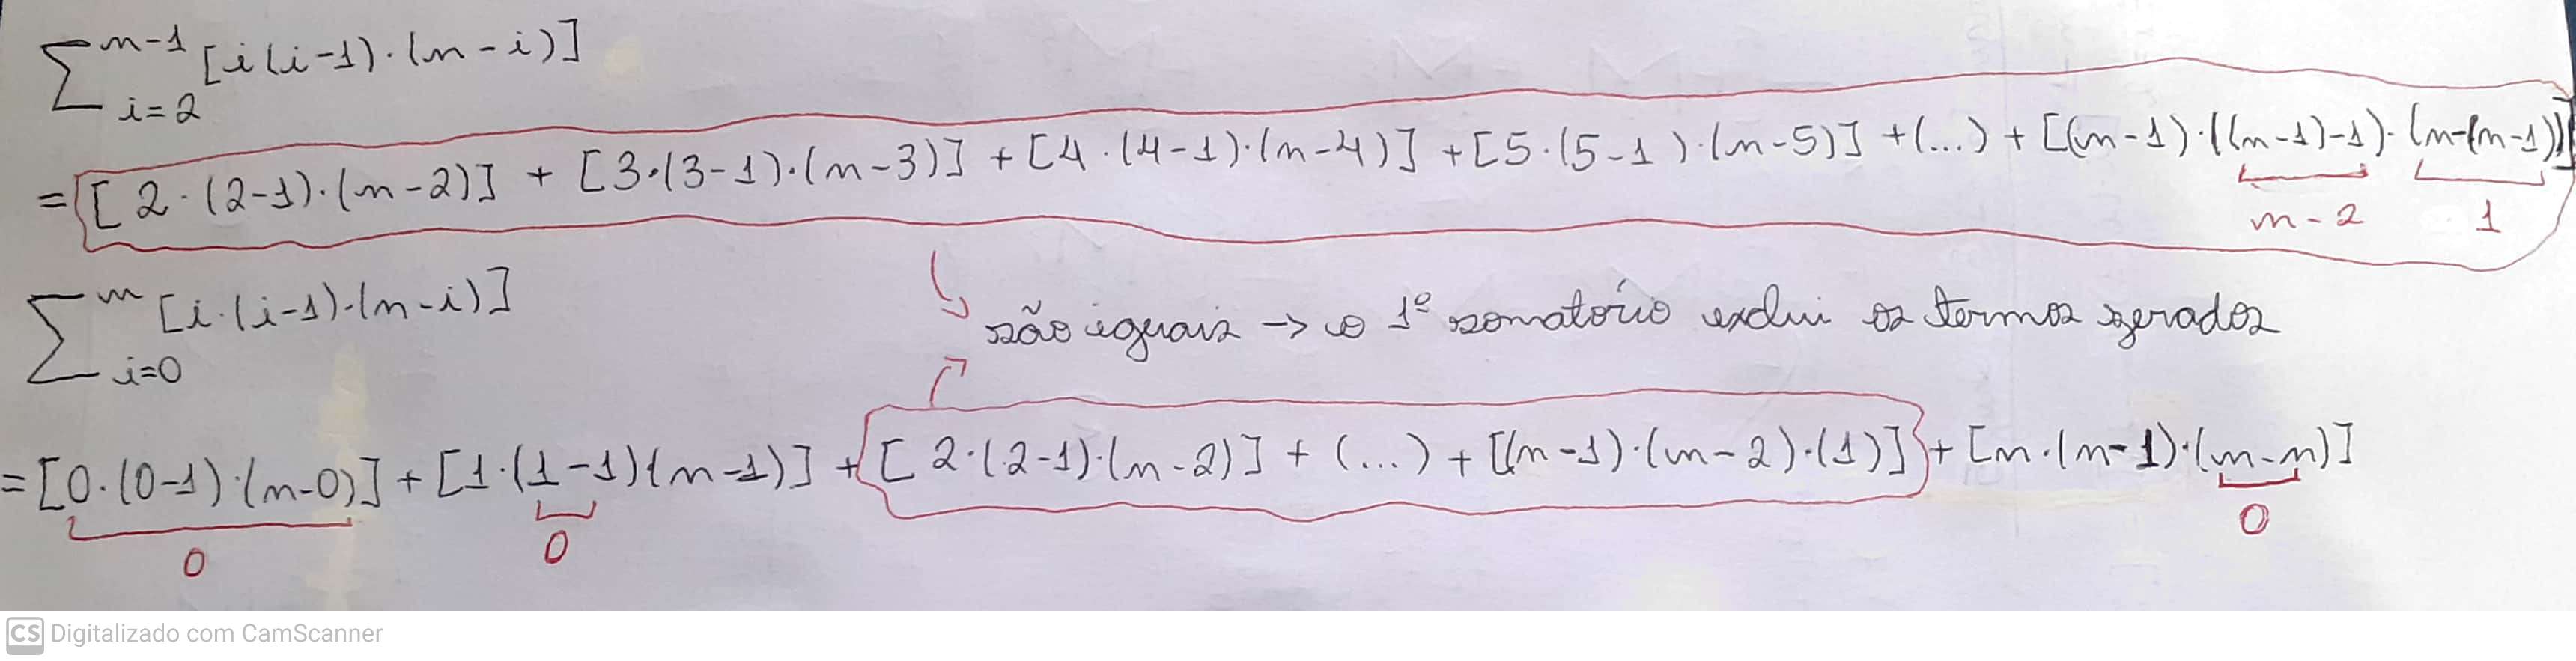 ∑_{i=2}^{n-1} [i(i-1)·(n-i)]
= [2·(2-1)·(n-2)] + [3·(3-1)·(n-3)] + [4·(4-1)·(n-4)] + [5·(5-1)·(n-5)] + (...) + [(n-1)·((n-1)-1)·(n-(n-1))]
n-2 1
∑_{i=0}^{n} [i·(i-1)·(n-i)]
são iguais → o 1º somatório exclui os termos zerados
= [0·(0-1)·(n-0)] + [1·(1-1)(n-1)] + [2·(2-1)·(n-2)] + (...) + [(n-1)·(n-2)·(1)] + [n·(n-1)·(n-n)]
0 0 0
CS Digitalizado com CamScanner